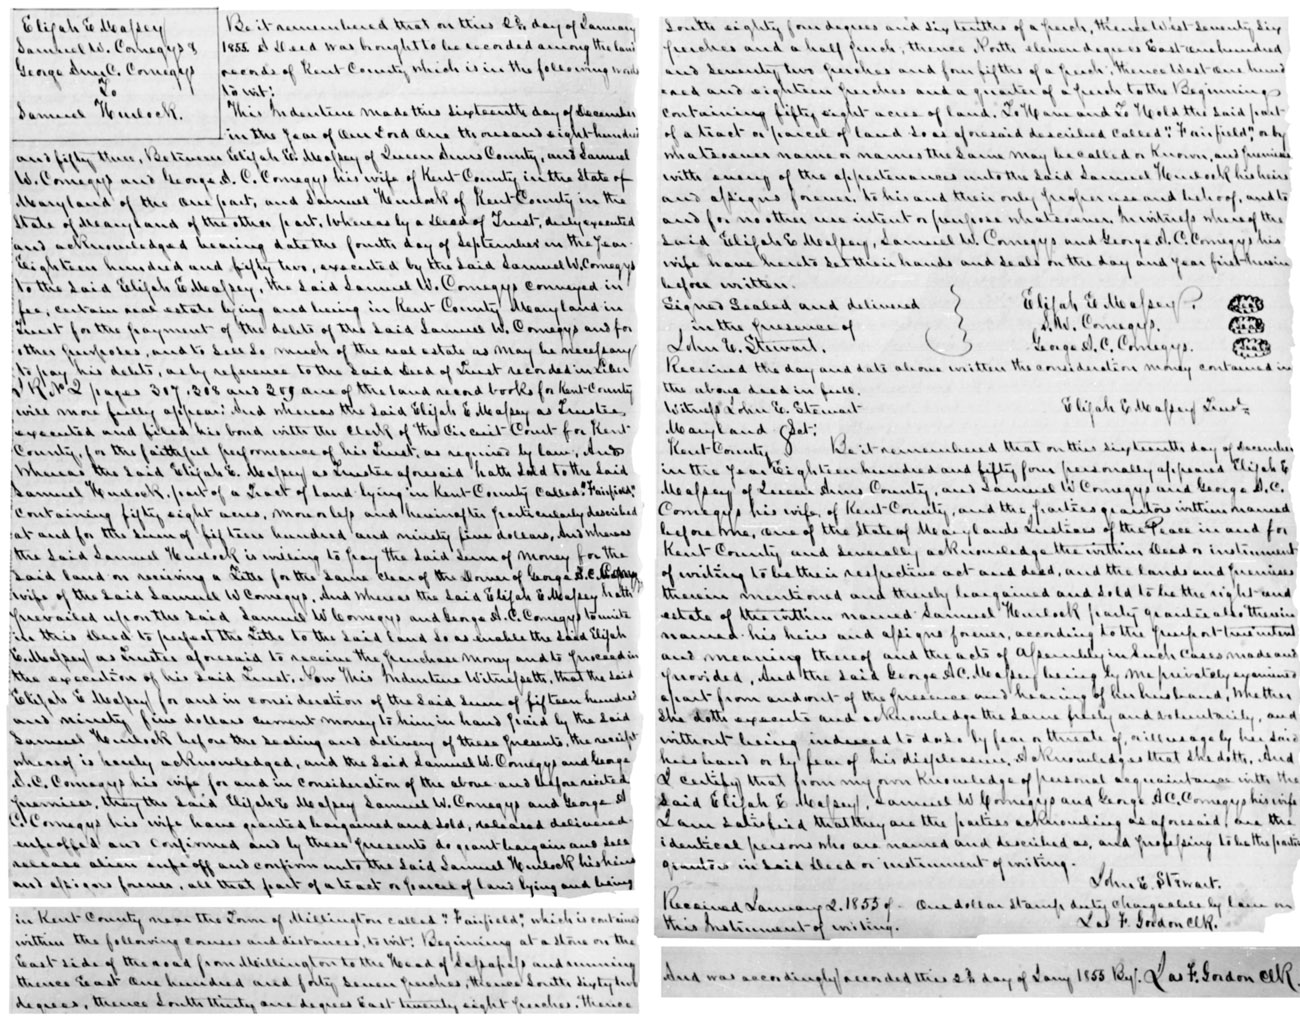 Elijah E Massey
Samuel W. Comegys &
George Ann C. Comegys
To
Samuel Hurlock.
Be it remembered that on this 2d. day of January
1855. A Deed was brought to be recorded among the land
records of Kent County which is in the following words
to wit:
This Indenture made this sixteenth day of December
in the Year of Our Lord One thousand eight hundred
and fifty three, Between Elijah E. Massey of Queen Anns County, and Samuel
W. Comegys and George A. C. Comegys his wife of Kent County in the State of
Maryland of the one part, and Samuel Hurlock of Kent County in the
State of Maryland of the other part. Whereas by a Deed of Trust, duly executed
and acknowledged bearing date the fourth day of September in the Year
Eighteen hundred and fifty two, executed by the said Samuel W. Comegys
to the said Elijah E Massey, the said Samuel W. Comegys conveyed in
fee, certain real estate lying and being in Kent County Maryland in
Trust for the payment of the debts of the said Samuel W. Comegys and for
other purposes, and to sell so much of the real estate as may be necessary
to pay his debts, as by reference to the said Deed of Trust recorded in Liber
J R No 2 pages 307. 308 and 209 one of the land record books for Kent County
will more fully appear: And whereas the said Elijah E Massey as Trustee,
executed and filed his bond with the Clerk of the Circuit Court for Kent
County, for the faithful performance of his Trust, as required by law, And
Whereas the said Elijah E. Massey as Trustee aforesaid hath sold to the said
Samuel Hurlock, part of a Tract of land lying in Kent County called "Fairfield,"
containing fifty eight acres, more or less and hereinafter particularly described
at and for the sum of fifteen hundred and ninety five dollars, And whereas
the said Samuel Hurlock is willing to pay the said sum of money for the
said land on receiving a Title for the same clear of the Dower of George A. C. Comegys
wife of the said Samuel W Comegys, And whereas the said Elijah E Massey hath
prevailed upon the said Samuel W Comegys and George A. C. Comegys to unite
in this Deed to perfect the Title to the said land so as enable the said Elijah
E. Massey as Trustee aforesaid to receive the purchase money and to proceed in
the execution of his said Trust. Now This Indenture Witnesseth, that the said
Elijah E Massey for and in consideration of the said sum of fifteen hundred
and ninety five dollars current money to him in hand paid by the said
Samuel Hurlock before the sealing and delivery of these presents, the receipt
whereof is hereby acknowledged, and the said Samuel W. Comegys and George
A. C. Comegys his wife for and in consideration of the above and before recited
premises, they the said Elijah E Massey Samuel W. Comegys and George A
C. Comegys his wife have granted bargained and sold, released delivered
enfeoffed and confirmed and by these presents do grant bargain and sell
release alien enfeoff and confirm unto the said Samuel Hurlock his heirs
and assigns forever, all that part of a tract or parcel of land lying and being
in Kent County near the Town of Millington called "Fairfield," which is contained
within the following courses and distances, to wit: Beginning at a stone on the
East side of the road from Millington to the Head of Sassafras and running
thence East One hundred and forty seven perches, thence South sixty two
degrees, thence South thirty one degrees East twenty eight perches: thence
South eighty four degrees and six tenths of a perch, thence West seventy six
perches and a half perch, thence North eleven degrees East one hundred
and seventy two perches and four fifths of a perch, thence West one hund
red and eighteen perches and a quarter of a perch to the Beginning
containing fifty eight acres of land. To Have and To Hold the said part
of a tract or parcel of land so as aforesaid described called "Fairfield," or by
whatsoever name or names the same may be called or known, and premises
with every of the appertenances unto the said Samuel Hurlock his heirs
and assigns forever, to his and their only proper use and behoof, and to
and for no other use intent or purpose whatsoever. In witness whereof the
said Elijah E Massey, Samuel W. Comegys and George A. C. Comegys his
wife have hereto set their hands and seals on the day and year first herein
before written.
Signed Sealed and delivered Elijah E. Massey
in the presence of S. W. Comegys.
John E. Stewart. George A. C. Comegys.
Received the day and date above written the consideration money contained in
the above deed in full.
Witness John E. Stewart Elijah E Massey Trust.
Maryland Sct:
Kent County Be it remembered that on this sixteenth day of December
in the Year Eighteen hundred and fifty four personally appeared Elijah E
Massey of Queen Anns County, and Samuel W Comegys and George A. C.
Comegys his wife, of Kent County, and the parties grantors within named
before me, One of the State of Marylands Justices of the Peace in and for
Kent County and severally acknowledge the within Deed or instrument
of writing to be their respective act and deed, and the lands and premises
therein mentioned and thereby bargained and sold to be the right and
estate of the within named Samuel Hurlock party grantee also therein
named his heirs and assigns forever, according to the purport true intent
and meaning thereof and the acts of Assembly in such cases made and
provided, And the said George A C. Massey being by me privately examined
apart from and out of the presence and hearing of her husband, Whether
she doth execute and acknowledge the same freely and voluntarily, and
without being induced to do so by fear or threats of, or ill usage by her said
husband or by fear of his displeasure, Acknowledges that she doth, And
I certify that from my own Knowledge of personal acquaintance with the
said Elijah E Massey, Samuel W Comegys and George A C. Comegys his wife
I am satisfied that they are the parties acknowledging as aforesaid, are the
identical persons who are named and described as, and professing to be the parties
grantors in said Deed or instrument of writing.
John E. Stewart.
Received January 2. 1855 of - One dollar stamp duty chargeable by law on
this Instrument of writing. Jas F. Gordon Clk.
And was accordingly recorded this 2d. day of Jany 1855 By. Jas F. Gordon Clk.